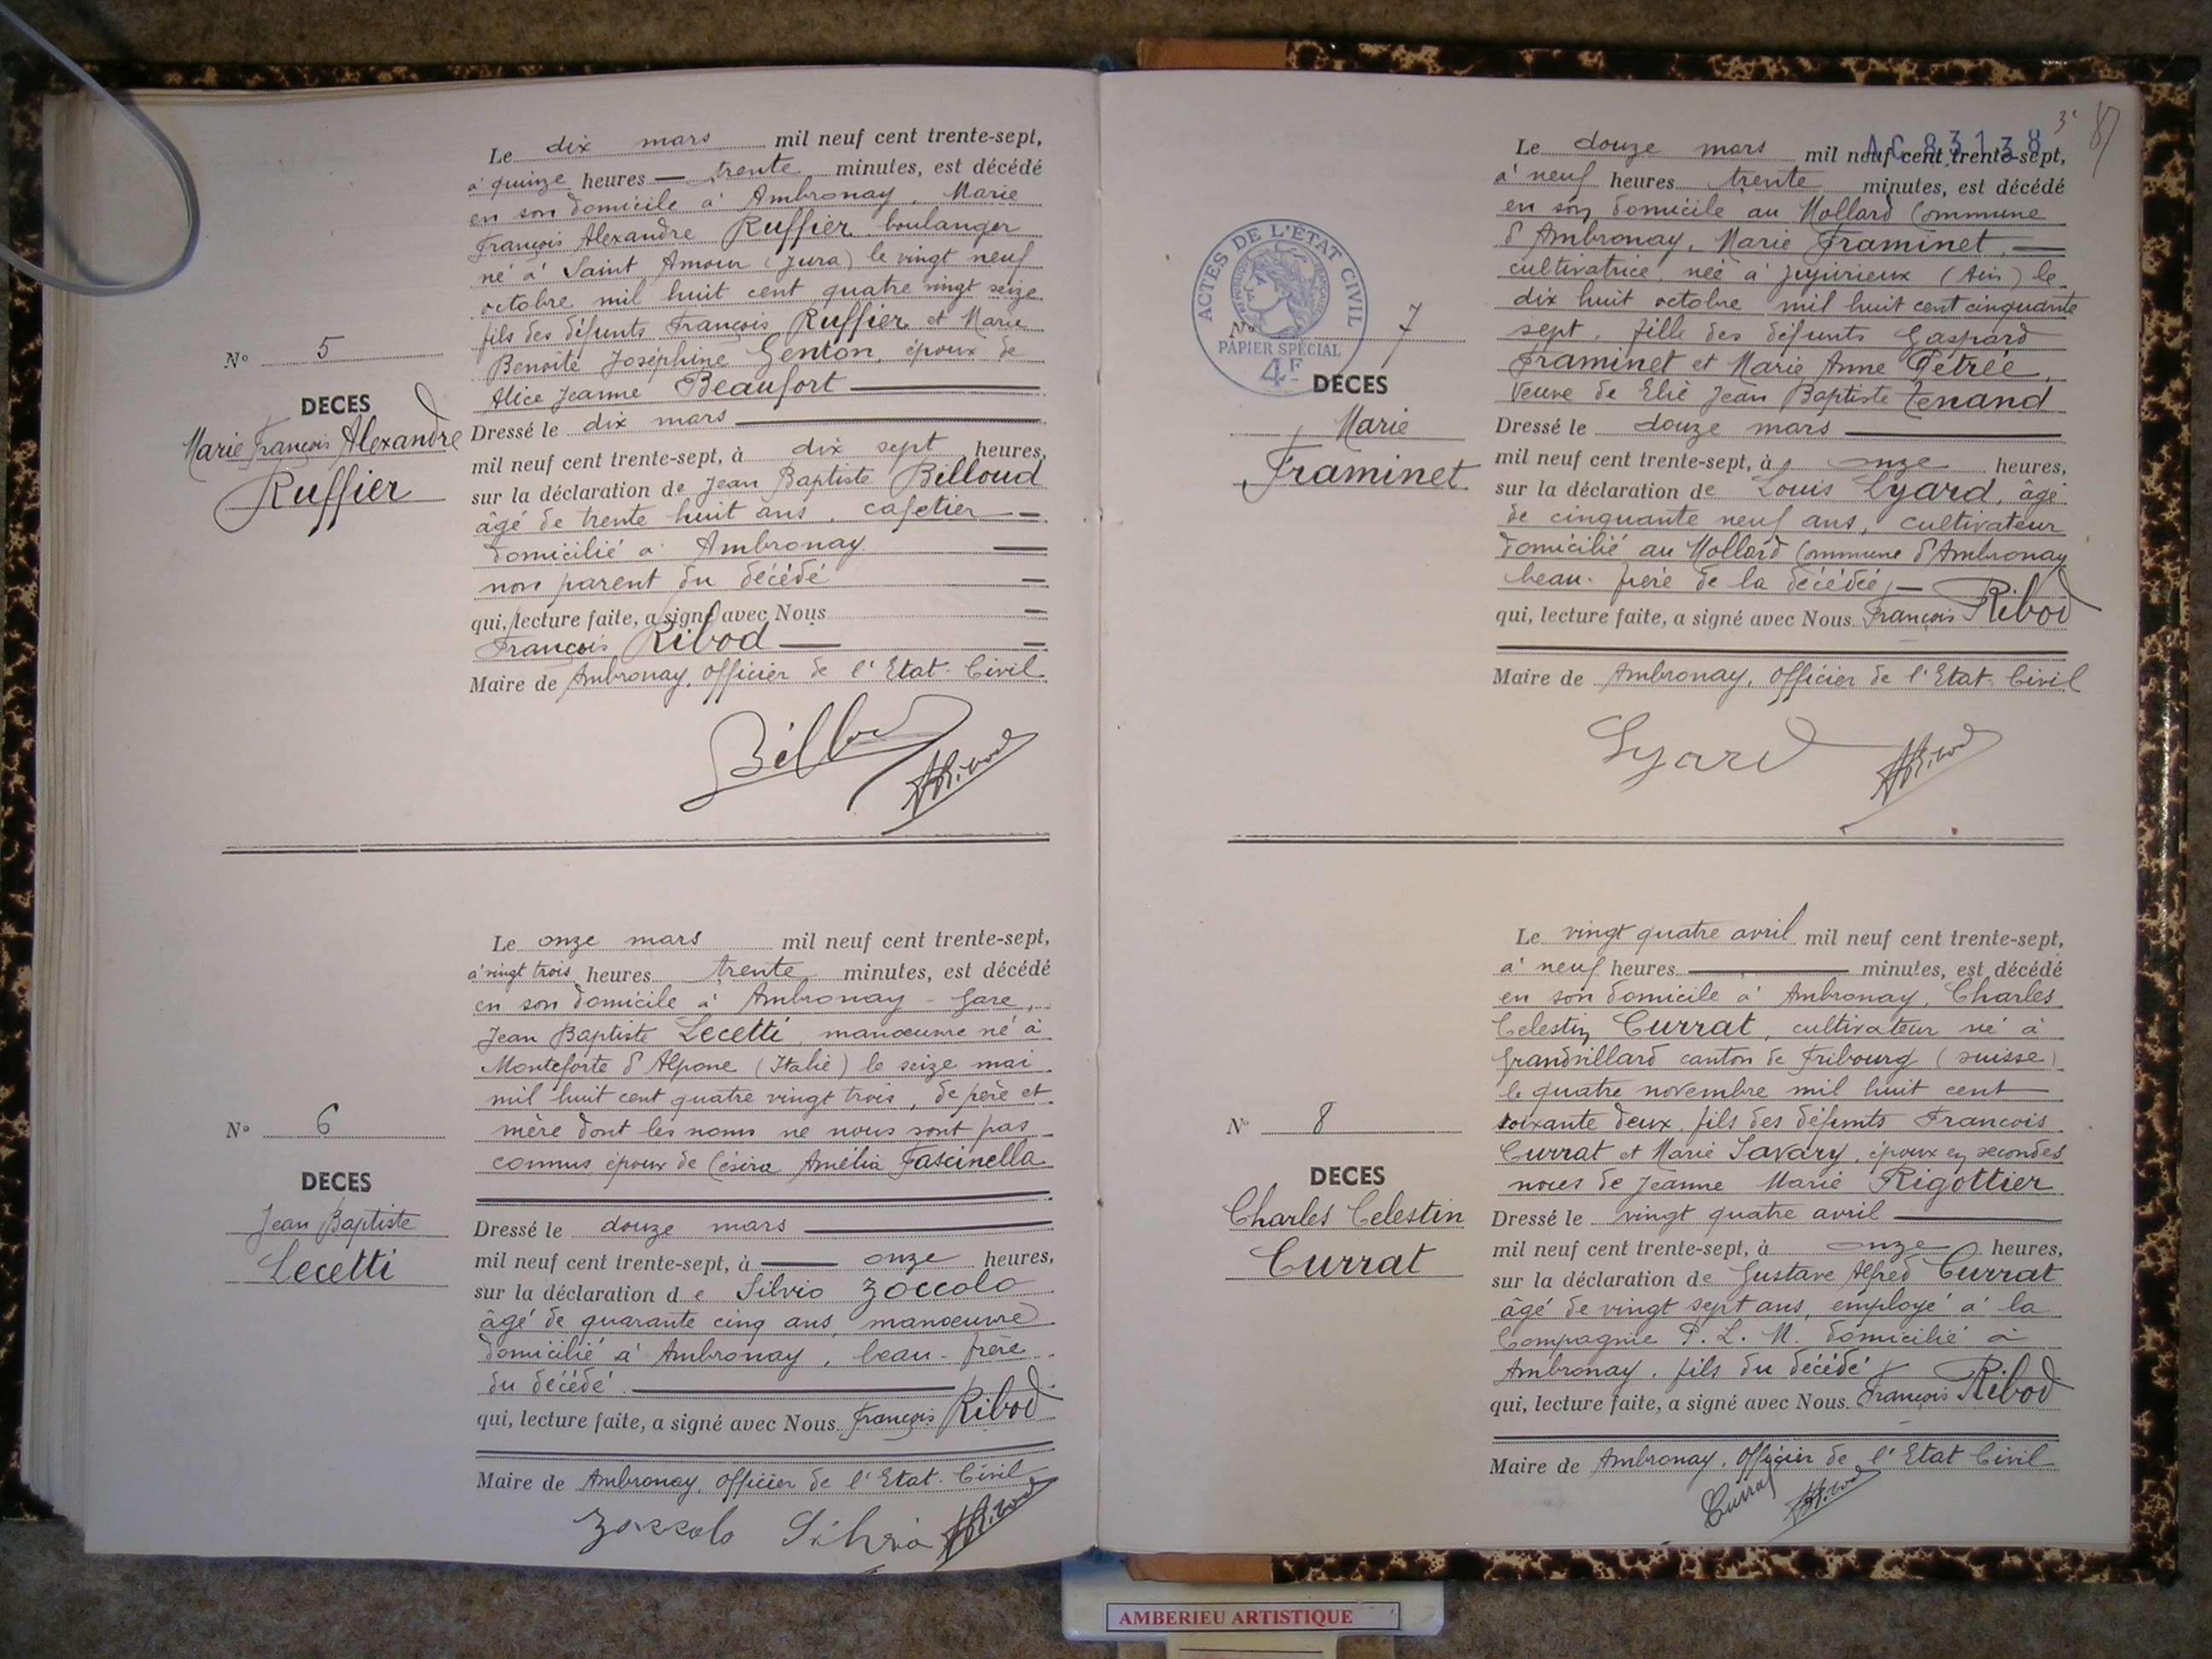 Le dix mars mil neuf cent trente-sept,
à quinze heures — trente minutes, est décédé
en son domicile à Ambronay, Marie
François Alexandre Ruffier, boulanger
né à Saint Amour (Jura) le vingt neuf
octobre mil huit cent quatre vingt seize
fils des défunts François Ruffier et Marie
Benoite Joséphine Genton, époux de
Alice Jeanne Beaufort
N° 5
DECES
Marie François Alexandre
Ruffier
Dressé le dix mars
mil neuf cent trente-sept, à dix sept heures,
sur la déclaration de Jean Baptiste Billoud
âgé de trente huit ans, cafetier
domicilié à Ambronay
non parent du décédé
qui, lecture faite, a signé avec Nous
François Ribod
Maire de Ambronay, Officier de l'Etat-Civil
Le onze mars mil neuf cent trente-sept,
à vingt trois heures trente minutes, est décédé
en son domicile à Ambronay - Gare,
Jean Baptiste Lecetti, manœuvre né à
Monteforte d'Alpone (Italie) le seize mai
mil huit cent quatre vingt trois, de père et
mère dont les noms ne nous sont pas
connus, époux de Césira Amélia Fascinella
N° 6
DECES
Jean Baptiste
Lecetti
Dressé le douze mars
mil neuf cent trente-sept, à onze heures,
sur la déclaration de Silvio Zoccolo
âgé de quarante cinq ans, manœuvre
domicilié à Ambronay, beau-frère
du décédé
qui, lecture faite, a signé avec Nous François Ribod
Maire de Ambronay, Officier de l'Etat-Civil
Zoccolo Silvio
87
AC 83138
Le douze mars mil neuf cent trente-sept,
à neuf heures trente minutes, est décédé
en son domicile au Mollard Commune
d'Ambronay, Marie Framinet,
cultivatrice, née à Jujurieux (Ain) le
dix huit octobre mil huit cent cinquante
sept, fille des défunts Gaspard
Framinet et Marie Anne Petrée,
Veuve de Elie Jean Baptiste Tenand
ACTES DE L'ÉTAT CIVIL
PAPIER SPÉCIAL
4F
N° 7
DECES
Marie
Framinet
Dressé le douze mars
mil neuf cent trente-sept, à onze heures,
sur la déclaration de Louis Lyard, âgé
de cinquante neuf ans, cultivateur
domicilié au Mollard Commune d'Ambronay
beau-frère de la décédée,
qui, lecture faite, a signé avec Nous François Ribod
Maire de Ambronay, Officier de l'Etat-Civil
Lyard
Le vingt quatre avril mil neuf cent trente-sept,
à neuf heures minutes, est décédé
en son domicile à Ambronay, Charles
Celestin Currat, cultivateur né à
Grandvillard canton de Fribourg (Suisse)
le quatre novembre mil huit cent
soixante deux, fils des défunts Francois
Currat et Marie Savary, époux en secondes
noces de Jeanne Marie Rigottier
N° 8
DECES
Charles Celestin
Currat
Dressé le vingt quatre avril
mil neuf cent trente-sept, à onze heures,
sur la déclaration de Gustave Alfred Currat
âgé de vingt sept ans, employé à la
Compagnie P. L. M. domicilié à
Ambronay, fils du décédé
qui, lecture faite, a signé avec Nous François Ribod
Maire de Ambronay, Officier de l'Etat Civil
Currat
AMBERIEU ARTISTIQUE